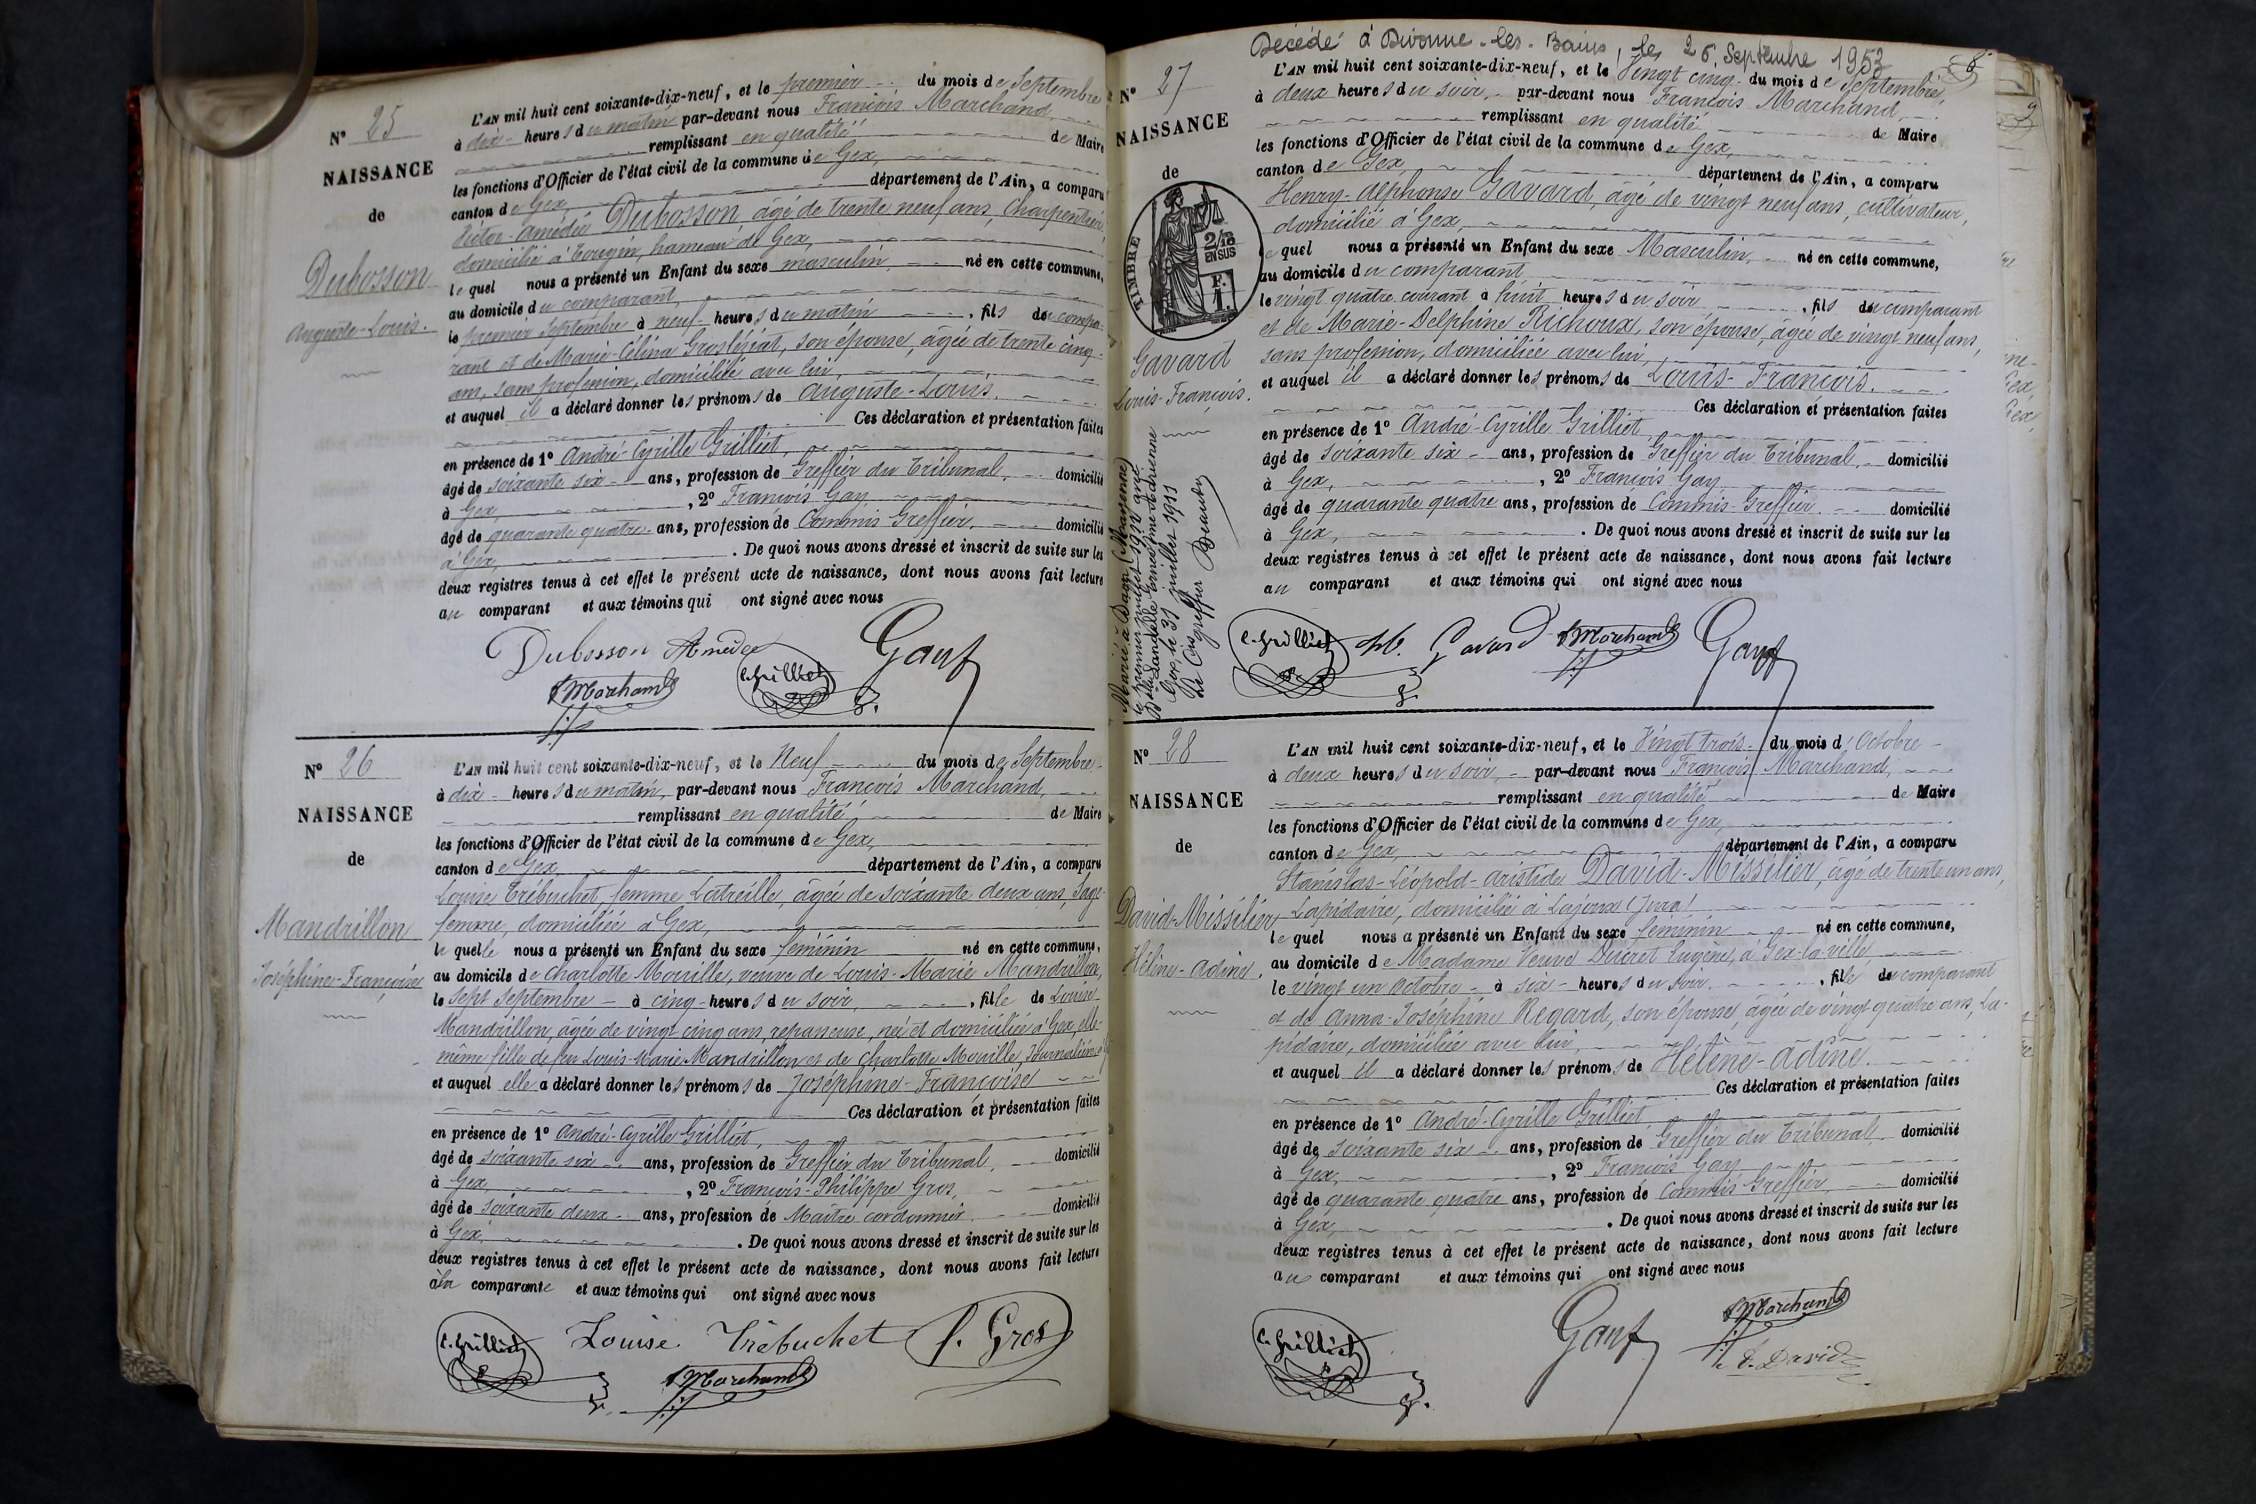 N° 25
NAISSANCE
de
Dubosson
Auguste-Louis.
L'AN mil huit cent soixante-dix-neuf, et le premier du mois de Septembre
à dix heures du matin par-devant nous François Marchand,
remplissant en qualité de Maire
les fonctions d'Officier de l'état civil de la commune de Gex,
canton de Gex, département de l'Ain, a comparu
Victor-Amédée Dubosson, âgé de trente neuf ans, Charpentier,
domicilié à Tougin, hameau de Gex,
lequel nous a présenté un Enfant du sexe masculin, né en cette commune,
au domicile du comparant,
le premier Septembre à neuf heures du matin, fils du compa-
rant et de Marie-Célina Grosfilléat, son épouse, âgée de trente cinq
ans, sans profession, domiciliée avec lui,
et auquel il a déclaré donner les prénoms de Auguste-Louis.
Ces déclaration et présentation faites
en présence de 1° André-Cyrille Grilliet,
âgé de soixante six ans, profession de Greffier du Tribunal, domicilié
à Gex, 2° François Gay
âgé de quarante quatre ans, profession de Commis Greffier, domicilié
à Gex, . De quoi nous avons dressé et inscrit de suite sur les
deux registres tenus à cet effet le présent acte de naissance, dont nous avons fait lecture
au comparant et aux témoins qui ont signé avec nous
Dubosson Amédée
C. Grilliet
Gay
f Marchand
N° 26
NAISSANCE
de
Mandrillon
Joséphine-Françoise
L'AN mil huit cent soixante-dix-neuf, et le Neuf du mois de Septembre
à dix heures du matin, par-devant nous François Marchand,
remplissant en qualité de Maire
les fonctions d'Officier de l'état civil de la commune de Gex,
canton de Gex, département de l'Ain, a comparu
Louise Trébuchet, femme Latreille, âgée de soixante deux ans, Sage-
femme, domiciliée à Gex,
lequelle nous a présenté un Enfant du sexe féminin né en cette commune,
au domicile de Charlotte Mouille, veuve de Louis-Marie Mandrillon,
le sept Septembre à cinq heures du soir, fille de Louise
Mandrillon, âgée de vingt cinq ans, repasseuse, née et domiciliée à Gex, elle-
même fille de feu Louis-Marie Mandrillon et de Charlotte Mouille, Journalière
et auquel elle a déclaré donner les prénoms de Joséphine-Françoise
Ces déclaration et présentation faites
en présence de 1° André-Cyrille Grilliet,
âgé de soixante six ans, profession de Greffier du Tribunal, domicilié
à Gex, 2° François-Philippe Gros,
âgé de soixante deux ans, profession de Maître cordonnier domicilié
à Gex, . De quoi nous avons dressé et inscrit de suite sur les
deux registres tenus à cet effet le présent acte de naissance, dont nous avons fait lecture
à la comparante et aux témoins qui ont signé avec nous
C. Grilliet
Louise Trébuchet
f. Gros
f Marchand
Décédé à Divonne-les-Bains, le 26 Septembre 1953
N° 27
NAISSANCE
de
TIMBRE
2/10
EN SUS
1 F.
Gavard
Louis-François.
Marié à Dagn (Mayenne)
le premier juillet 1911 avec
Gex, le 31 juillet 1911
Le Cis greffier
L'AN mil huit cent soixante-dix-neuf, et le Vingt cinq du mois de Septembre,
à deux heures du soir, par-devant nous François Marchand,
remplissant en qualité de Maire
les fonctions d'Officier de l'état civil de la commune de Gex,
canton de Gex, département de l'Ain, a comparu
Henry-Alphonse Gavard, âgé de vingt neuf ans, cultivateur,
domicilié à Gex,
lequel nous a présenté un Enfant du sexe Masculin, né en cette commune,
au domicile du comparant
le vingt quatre courant à huit heures du soir, fils du comparant
et de Marie-Delphine Richoux, son épouse, âgée de vingt neuf ans,
sans profession, domiciliée avec lui
et auquel il a déclaré donner les prénoms de Louis-François.
Ces déclaration et présentation faites
en présence de 1° André-Cyrille Grilliet,
âgé de soixante six ans, profession de Greffier du Tribunal, domicilié
à Gex, 2° François Gay
âgé de quarante quatre ans, profession de Commis-Greffier. domicilié
à Gex, . De quoi nous avons dressé et inscrit de suite sur les
deux registres tenus à cet effet le présent acte de naissance, dont nous avons fait lecture
au comparant et aux témoins qui ont signé avec nous
C. Grilliet
Gavard
f Marchand
Gay
N° 28
NAISSANCE
de
David-Missilier
Hélène-Adine.
L'AN mil huit cent soixante-dix-neuf, et le Vingt trois du mois d'Octobre
à deux heures du soir, par-devant nous François Marchand,
remplissant en qualité de Maire
les fonctions d'Officier de l'état civil de la commune de Gex,
canton de Gex, département de l'Ain, a comparu
Stanislas-Léopold-Aristide David-Missilier, âgé de trente un ans,
Lapidaire, domicilié à Lajoux (Jura)
lequel nous a présenté un Enfant du sexe féminin né en cette commune,
au domicile de Madame Veuve Ducret Eugène, à Gex-la-ville
le vingt un Octobre à six heures du soir, fille du comparant
et de Anna-Joséphine Regard, son épouse, âgée de vingt quatre ans, La-
pidaire, domiciliée avec lui,
et auquel il a déclaré donner les prénoms de Hélène-Adine.
Ces déclaration et présentation faites
en présence de 1° André-Cyrille Grilliet
âgé de soixante six ans, profession de Greffier du Tribunal, domicilié
à Gex, 2° François Gay
âgé de quarante quatre ans, profession de Commis Greffier domicilié
à Gex, . De quoi nous avons dressé et inscrit de suite sur les
deux registres tenus à cet effet le présent acte de naissance, dont nous avons fait lecture
au comparant et aux témoins qui ont signé avec nous
C. Grilliet
Gay
f Marchand
David